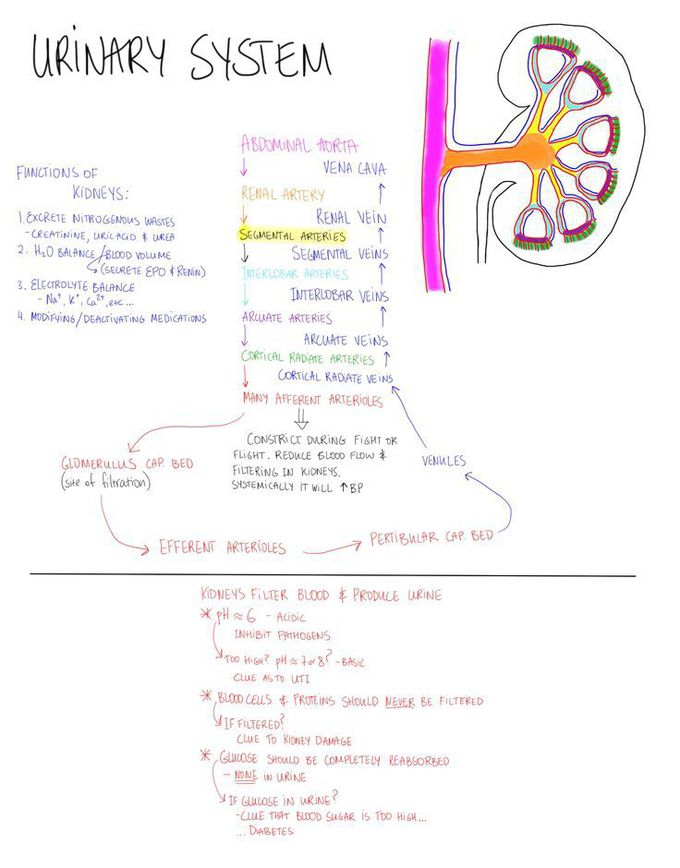 URINARY SYSTEM
FUNCTIONS OF
KIDNEYS:
1. EXCRETE NITROGENOUS WASTES
- CREATININE, URIC ACID & UREA
2. H2O BALANCE/BLOOD VOLUME
(SECRETE EPO & RENIN)
3. ELECTROLYTE BALANCE
- Na+, K+, Ca2+, etc...
4. MODIFYING/DEACTIVATING MEDICATIONS
ABDOMINAL AORTA
VENA CAVA
RENAL ARTERY
RENAL VEIN
SEGMENTAL ARTERIES
SEGMENTAL VEINS
INTERLOBAR ARTERIES
INTERLOBAR VEINS
ARCUATE ARTERIES
ARCUATE VEINS
CORTICAL RADIATE ARTERIES
CORTICAL RADIATE VEINS
MANY AFFERENT ARTERIOLES
CONSTRICT DURING FIGHT OR
FLIGHT. REDUCE BLOOD FLOW &
FILTERING IN KIDNEYS.
SYSTEMICALLY IT WILL ↑ BP
GLOMERULUS CAP. BED
(site of filtration)
EFFERENT ARTERIOLES
PERTIBULAR CAP. BED
VENULES
KIDNEYS FILTER BLOOD & PRODUCE URINE
* pH ≈ 6 - ACIDIC
INHIBIT PATHOGENS
TOO HIGH? pH ≈ 7 or 8? - BASIC
CLUE AS TO UTI
* BLOOD CELLS & PROTEINS SHOULD NEVER BE FILTERED
IF FILTERED?
CLUE TO KIDNEY DAMAGE
* GLUCOSE SHOULD BE COMPLETELY REABSORBED
- NONE IN URINE
IF GLUCOSE IN URINE?
- CLUE THAT BLOOD SUGAR IS TOO HIGH...
... DIABETES